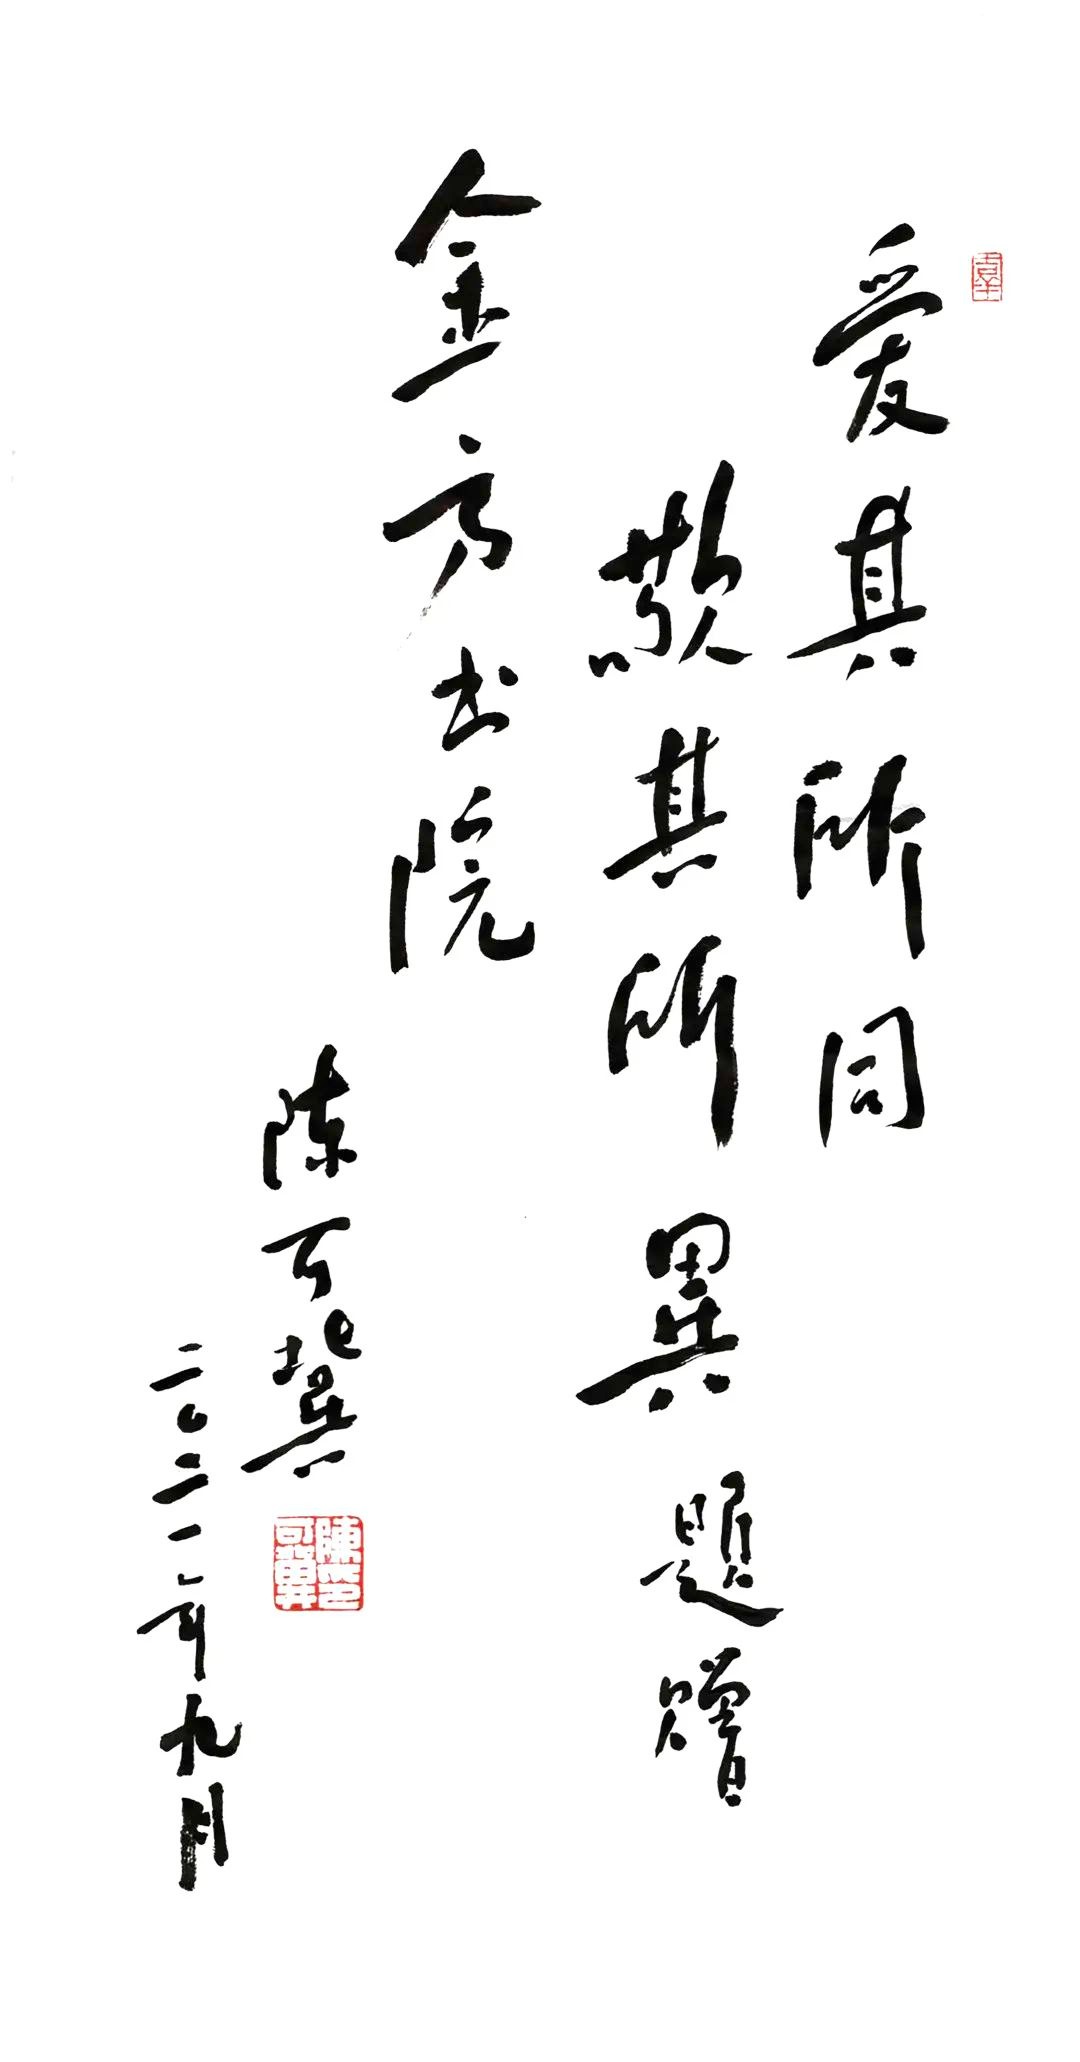 爱其所同
敬其所異 题赠
金方书院
陈可冀
二〇二一年九月
陳可冀印